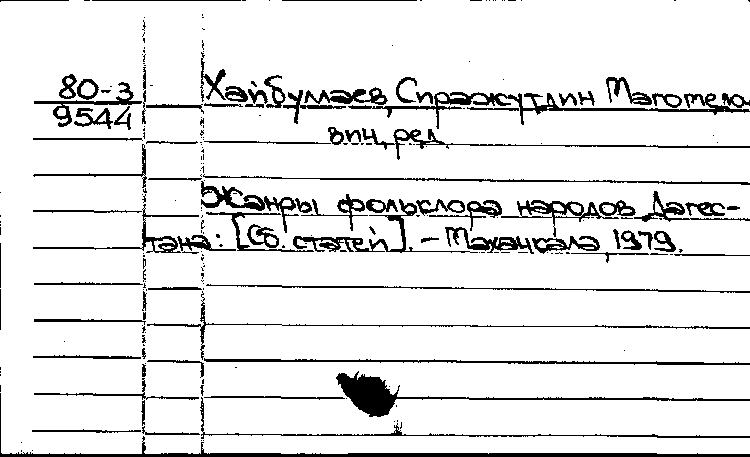 80-3 Хайбумаев, Сиражутдин Магомедо
9544 вич, ред.
Жанры фольклора народов Дагес-
тана: [Сб. статей]. – Махачкала, 1979.